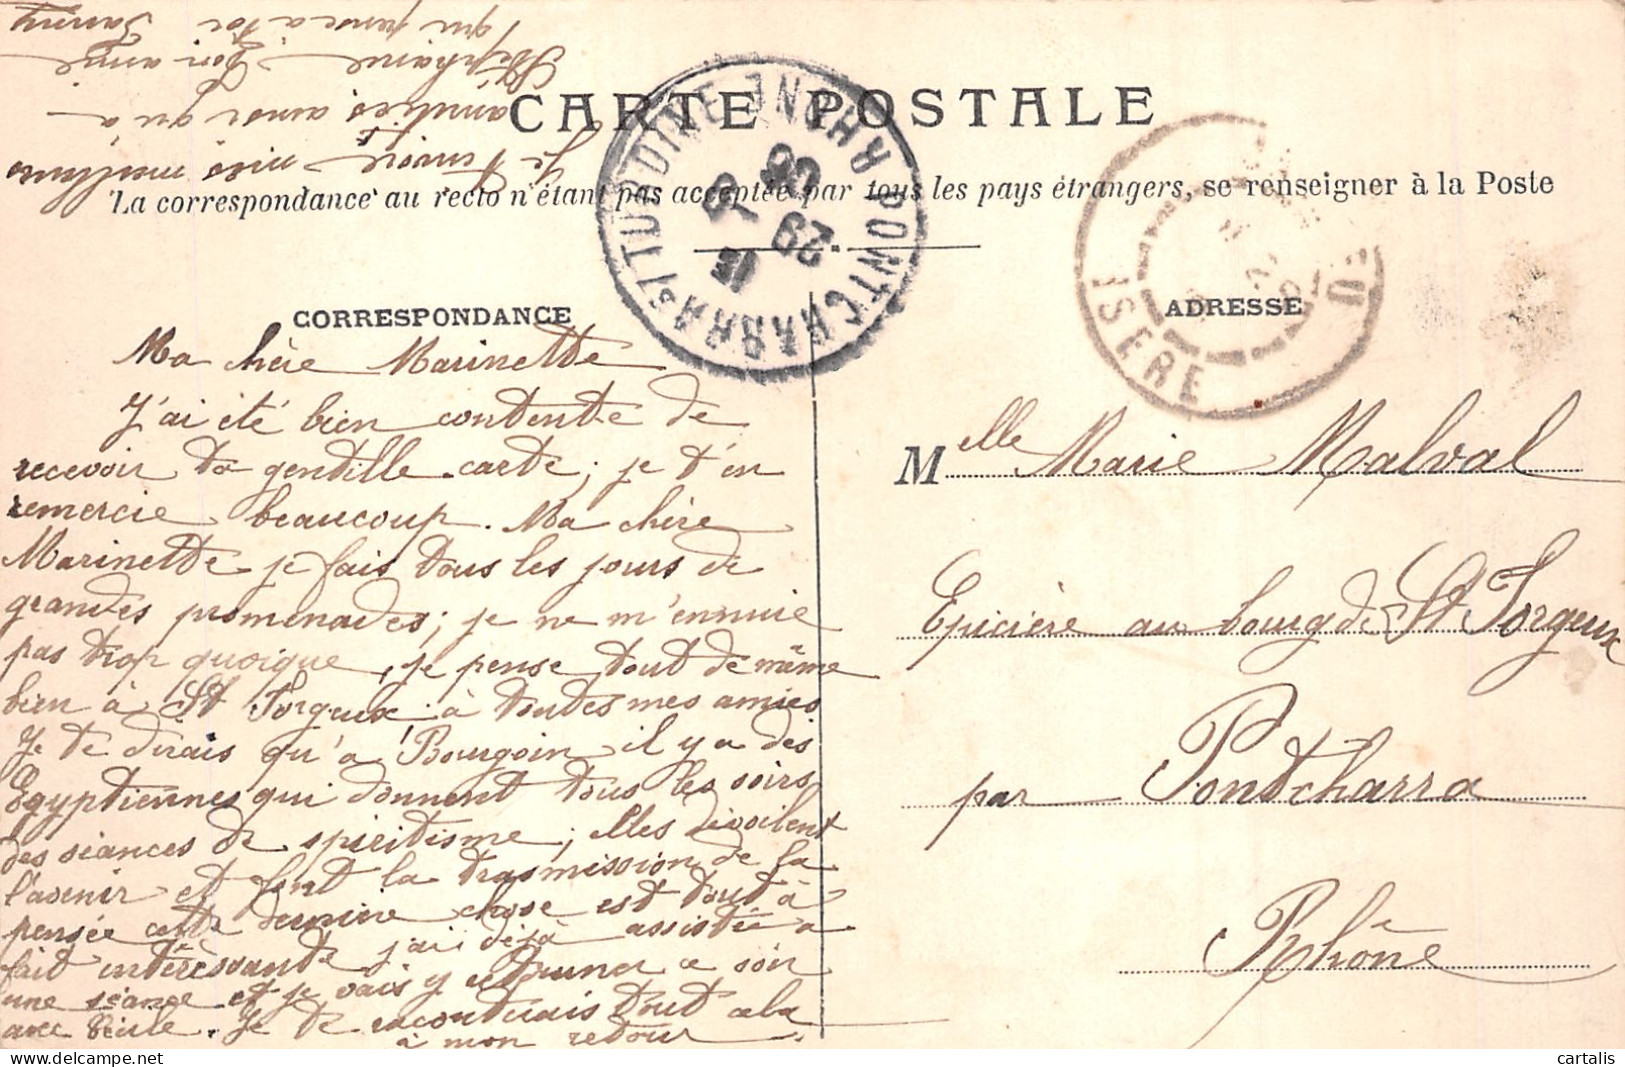 CARTE POSTALE
La correspondance au recto n'étant pas acceptée par tous les pays étrangers, se renseigner à la Poste
CORRESPONDANCE
Ma chère Marinette
J'ai été bien contente de
recevoir ta gentille carte; je t'en
remercie beaucoup. Ma chère
Marinette je fais tous les jours de
grandes promenades; je ne m'ennuie
pas trop quoique, je pense tout de même
bien à St Forgeux à toutes mes amies
Je te dirais qu'à Bourgoin il y a des
Egyptiennes qui donnent tous les soirs
des séances de spiritisme; elles dévoilent
l'avenir et font la trasmission de la
pensée cette dernière chose est tout à
fait intéressante j'ai déjà assistée à
une séance et je vais y retourner ce soir
avec Cécile. Je te raconterais tout cela
à mon retour.
Je t'envoie mes meilleures
amitiés ainsi qu'à
Stéphanie Ton amie
qui pense à toi Fanny
ADRESSE
Melle Marie Malval
Epicière au bourg de St Forgeux
par Pontcharra
Rhône
PONTCHARRA S/ TURDINE RHONE
15
29 -5
06
ISERE